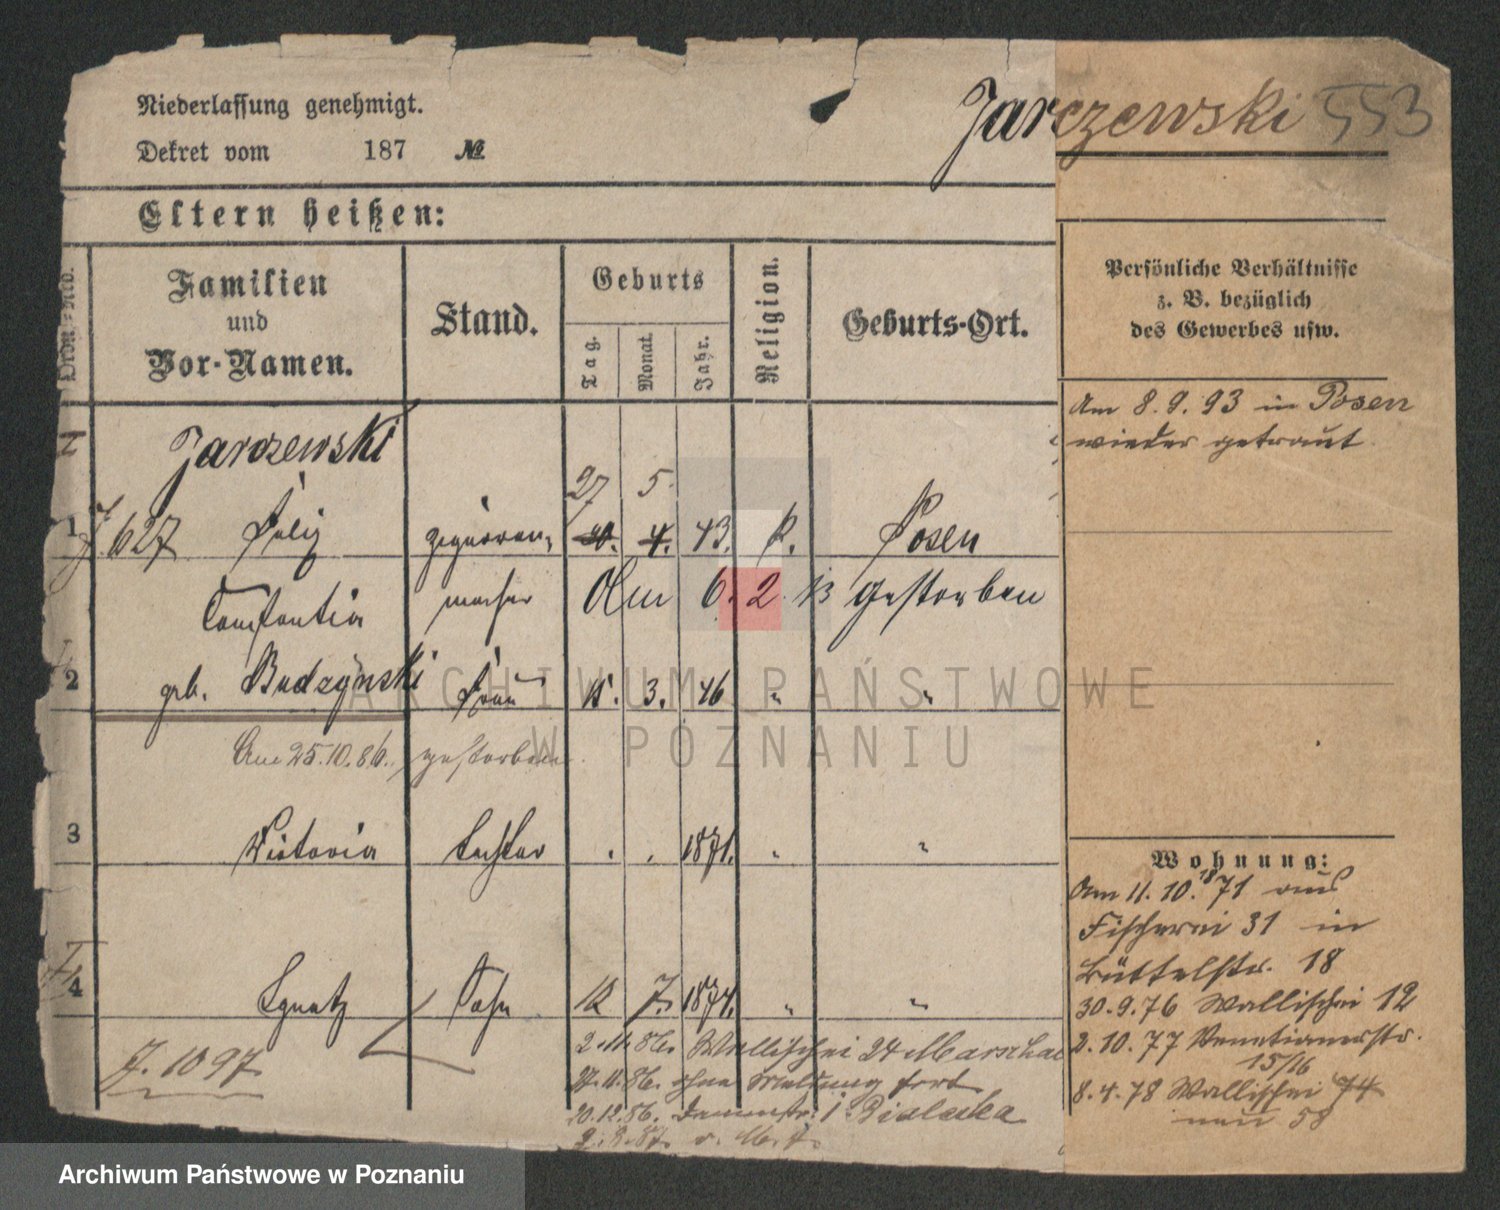 Niederlassung genehmigt.
Dekret vom 187 №
Jarczewski 553
Eltern heißen:
Ordn.-No.
Familien
und
Vor-Namen.
Stand.
Geburts
Tag.
Monat.
Jahr.
Religion.
Geburts-Ort.
Persönliche Verhältnisse
z. B. bezüglich
des Gewerbes usw.
Am 8.9.93 in Posen
wieder getraut
Jarczewski
27 5.
1 J. 627 Felix zigarren- 20. 4. 43. k. Posen
Constantia macher Am 6.2.13 gestorben
2 geb. Budzynski Frau 15. 3. 46 " "
Am 25.10.86. gestorben.
3 Victoria Tochter . . 1871. " "
4 Ignatz Sohn 12 7. 1874. " "
J. 1097
2.11.86. Wallischei 24 Marschal
27.11.86. ohne Meldung fort
20.12.86. Dammstr. 1 Bialecka
Wohnung:
Am 11.10.1871 aus
Fischerei 31 in
Büttelstr. 18
30.9.76 Wallischei 12
2.10.77 Venetianerstr.
15/16
8.4.78 Wallischei 74
neu 58
ARCHIWUM PAŃSTWOWE
W POZNANIU
Archiwum Państwowe w Poznaniu